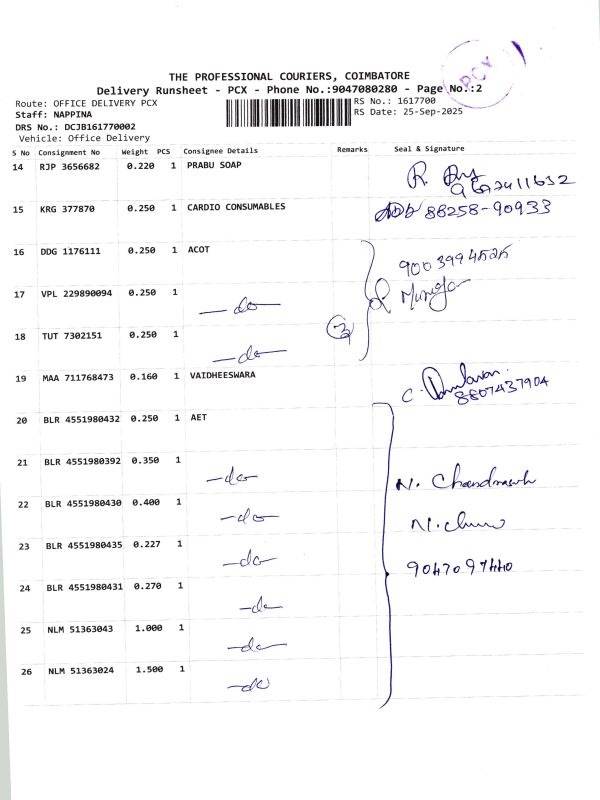 PCX
THE PROFESSIONAL COURIERS, COIMBATORE
Delivery Runsheet - PCX - Phone No.:9047080280 - Page No.:2
Route: OFFICE DELIVERY PCX
Staff: NAPPINA
DRS No.: DCJB161770002
Vehicle: Office Delivery
RS No.: 1617700
RS Date: 25-Sep-2025
S No Consignment No Weight PCS Consignee Details Remarks Seal & Signature
14 RJP 3656682 0.220 1 PRABU SOAP R.
15 KRG 377870 0.250 1 CARDIO CONSUMABLES 88258-90933
16 DDG 1176111 0.250 1 ACOT
17 VPL 229890094 0.250 1 -do-
18 TUT 7302151 0.250 1 -do- 3
19 MAA 711768473 0.160 1 VAIDHEESWARA C.
8807437904
20 BLR 4551980432 0.250 1 AET
21 BLR 4551980392 0.350 1 -do- N.
22 BLR 4551980430 0.400 1 -do- N.
23 BLR 4551980435 0.227 1 -do- 9047097440
24 BLR 4551980431 0.270 1 -do-
25 NLM 51363043 1.000 1 -do-
26 NLM 51363024 1.500 1 -do-